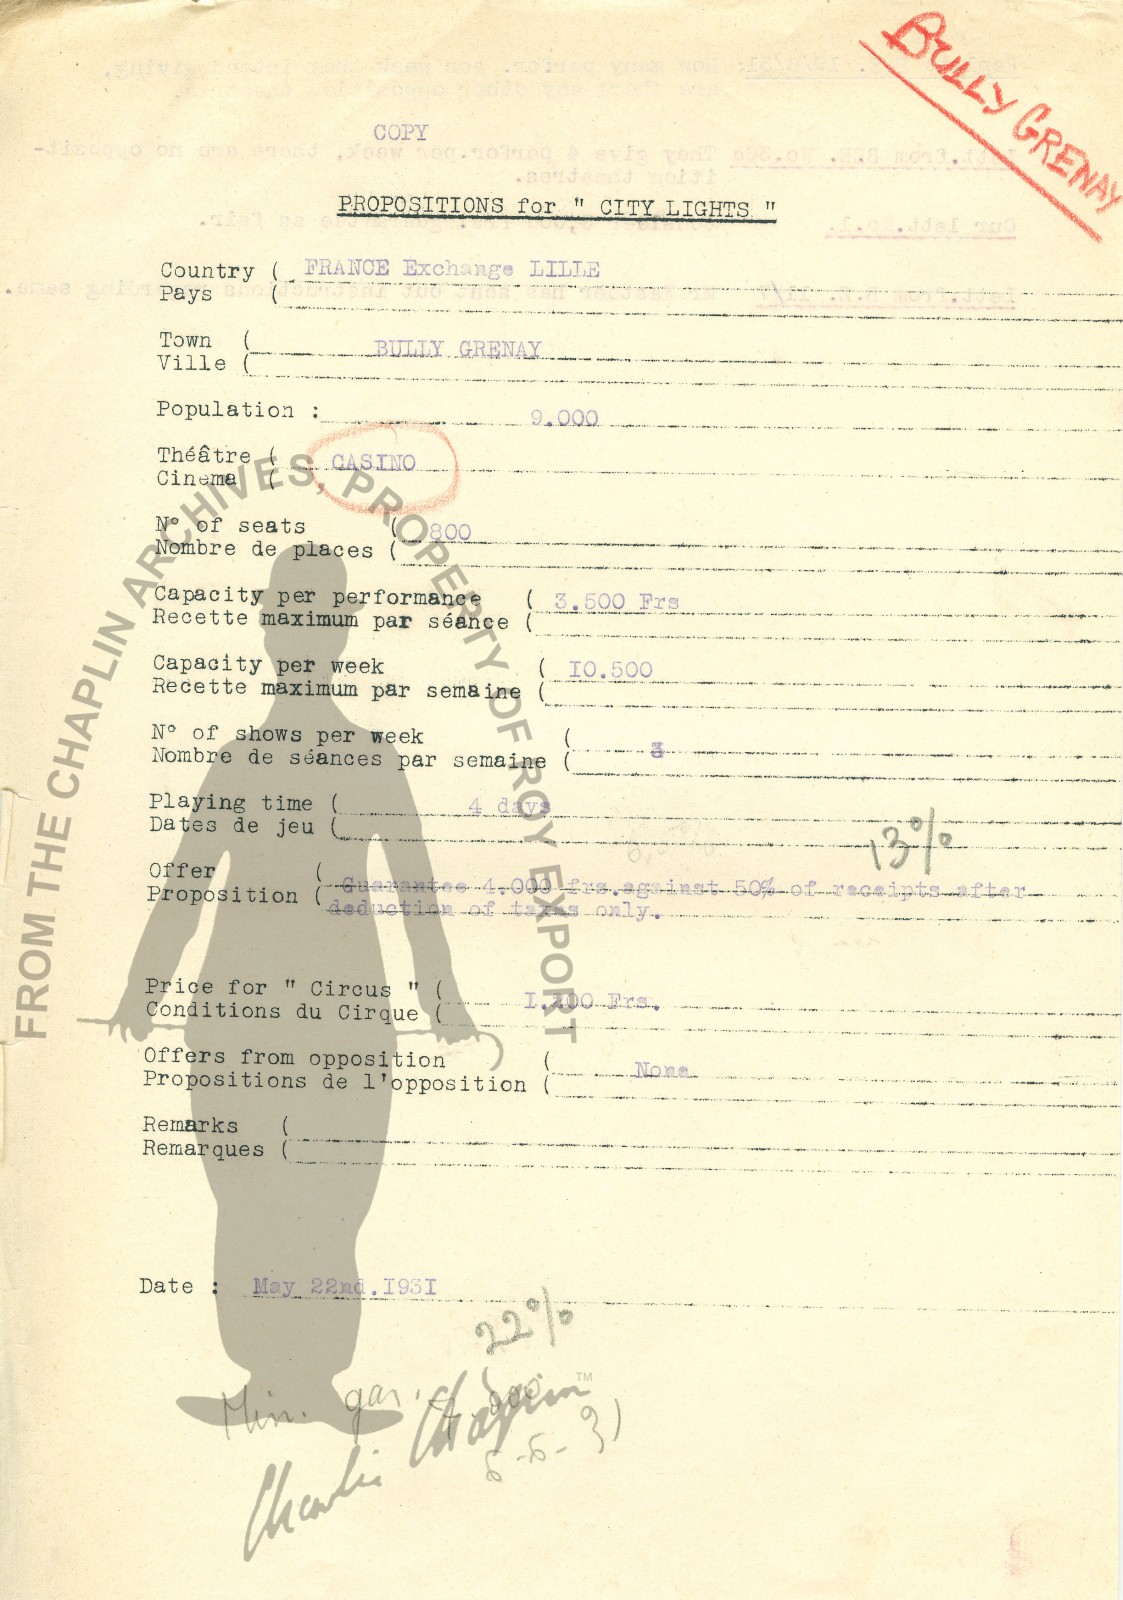 BULLY GRENAY
COPY
PROPOSITIONS for " CITY LIGHTS "
Country ( FRANCE Exchange LILLE
Pays (
Town ( BULLY GRENAY
Ville (
Population : 9.000
Théâtre ( CASINO
Cinema (
N° of seats ( 800
Nombre de places (
Capacity per performance ( 3.500 Frs
Recette maximum par séance (
Capacity per week ( I0.500
Recette maximum par semaine (
N° of shows per week ( 3
Nombre de séances par semaine (
Playing time ( 4 days
Dates de jeu (
13%
Offer (
Proposition ( Guarantee 4.000 frs.against 50% of receipts after
deduction of taxes only.
Price for " Circus " ( Frs.
Conditions du Cirque (
Offers from opposition ( None
Propositions de l'opposition (
Remarks (
Remarques (
Date : May 22nd.I93I
22%
Min. gar.
Charlie Chaplin TM
FROM THE CHAPLIN ARCHIVES, PROPERTY OF ROY EXPORT